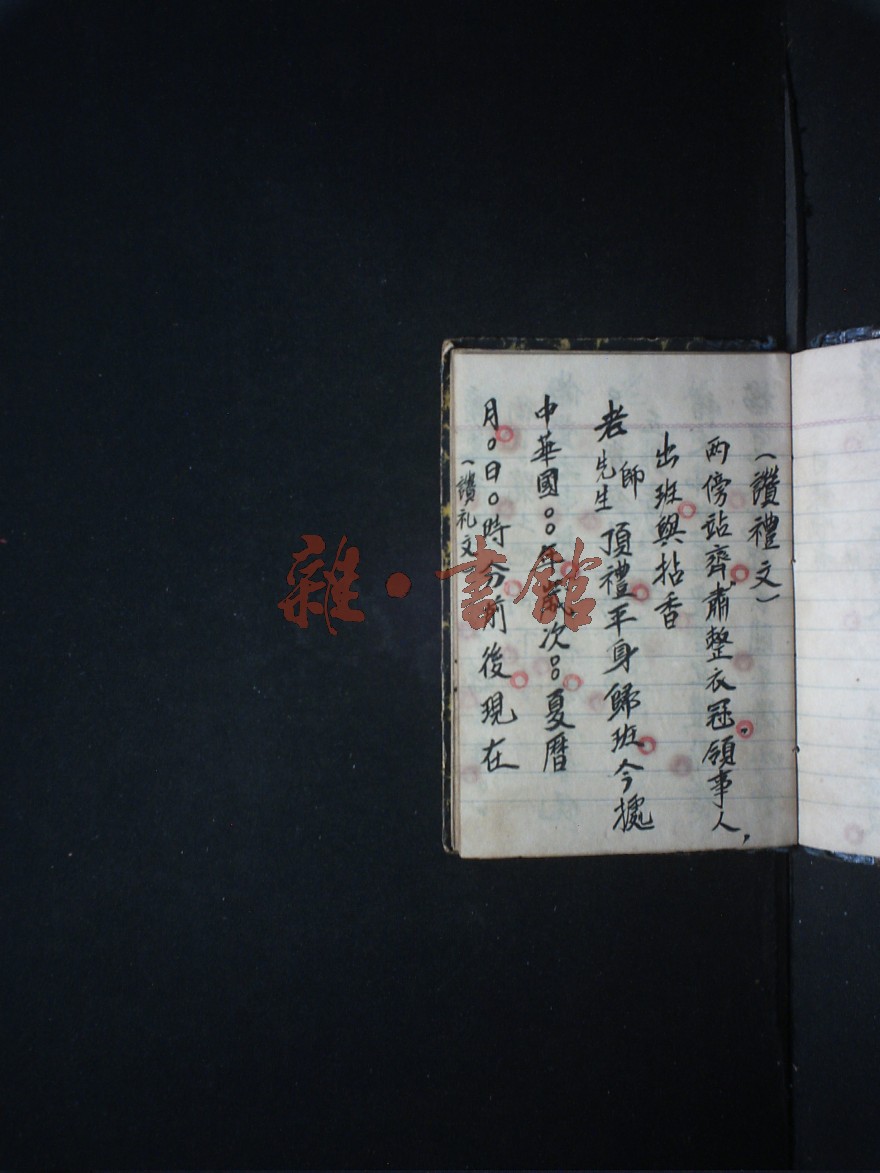 (讚禮文)
両傍站齊肅整衣冠，領事人，
出班與拈香
老師先生頂禮平身歸班今據
中華國○○年歲次○○夏曆
月○日○時分前後現在
(讚礼文)
雜·書館